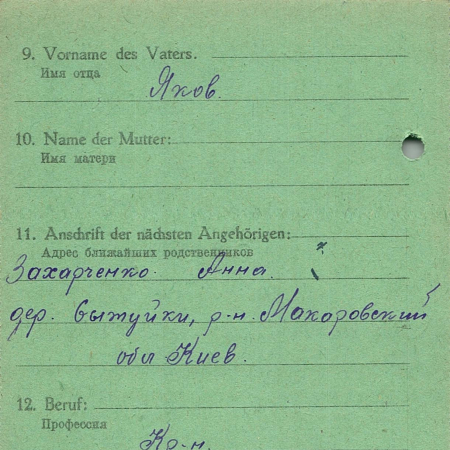 9. Vorname des Vaters.
Имя отца
Яков.
10. Name der Mutter:
Имя матери
11. Anschrift der nächsten Angehörigen:
Адрес ближайших родственников
Захарченко. Анна.
дер. Вытуйки, р-н. Макаровский
обл Киев.
12. Beruf:
Профессия
Кр-н.